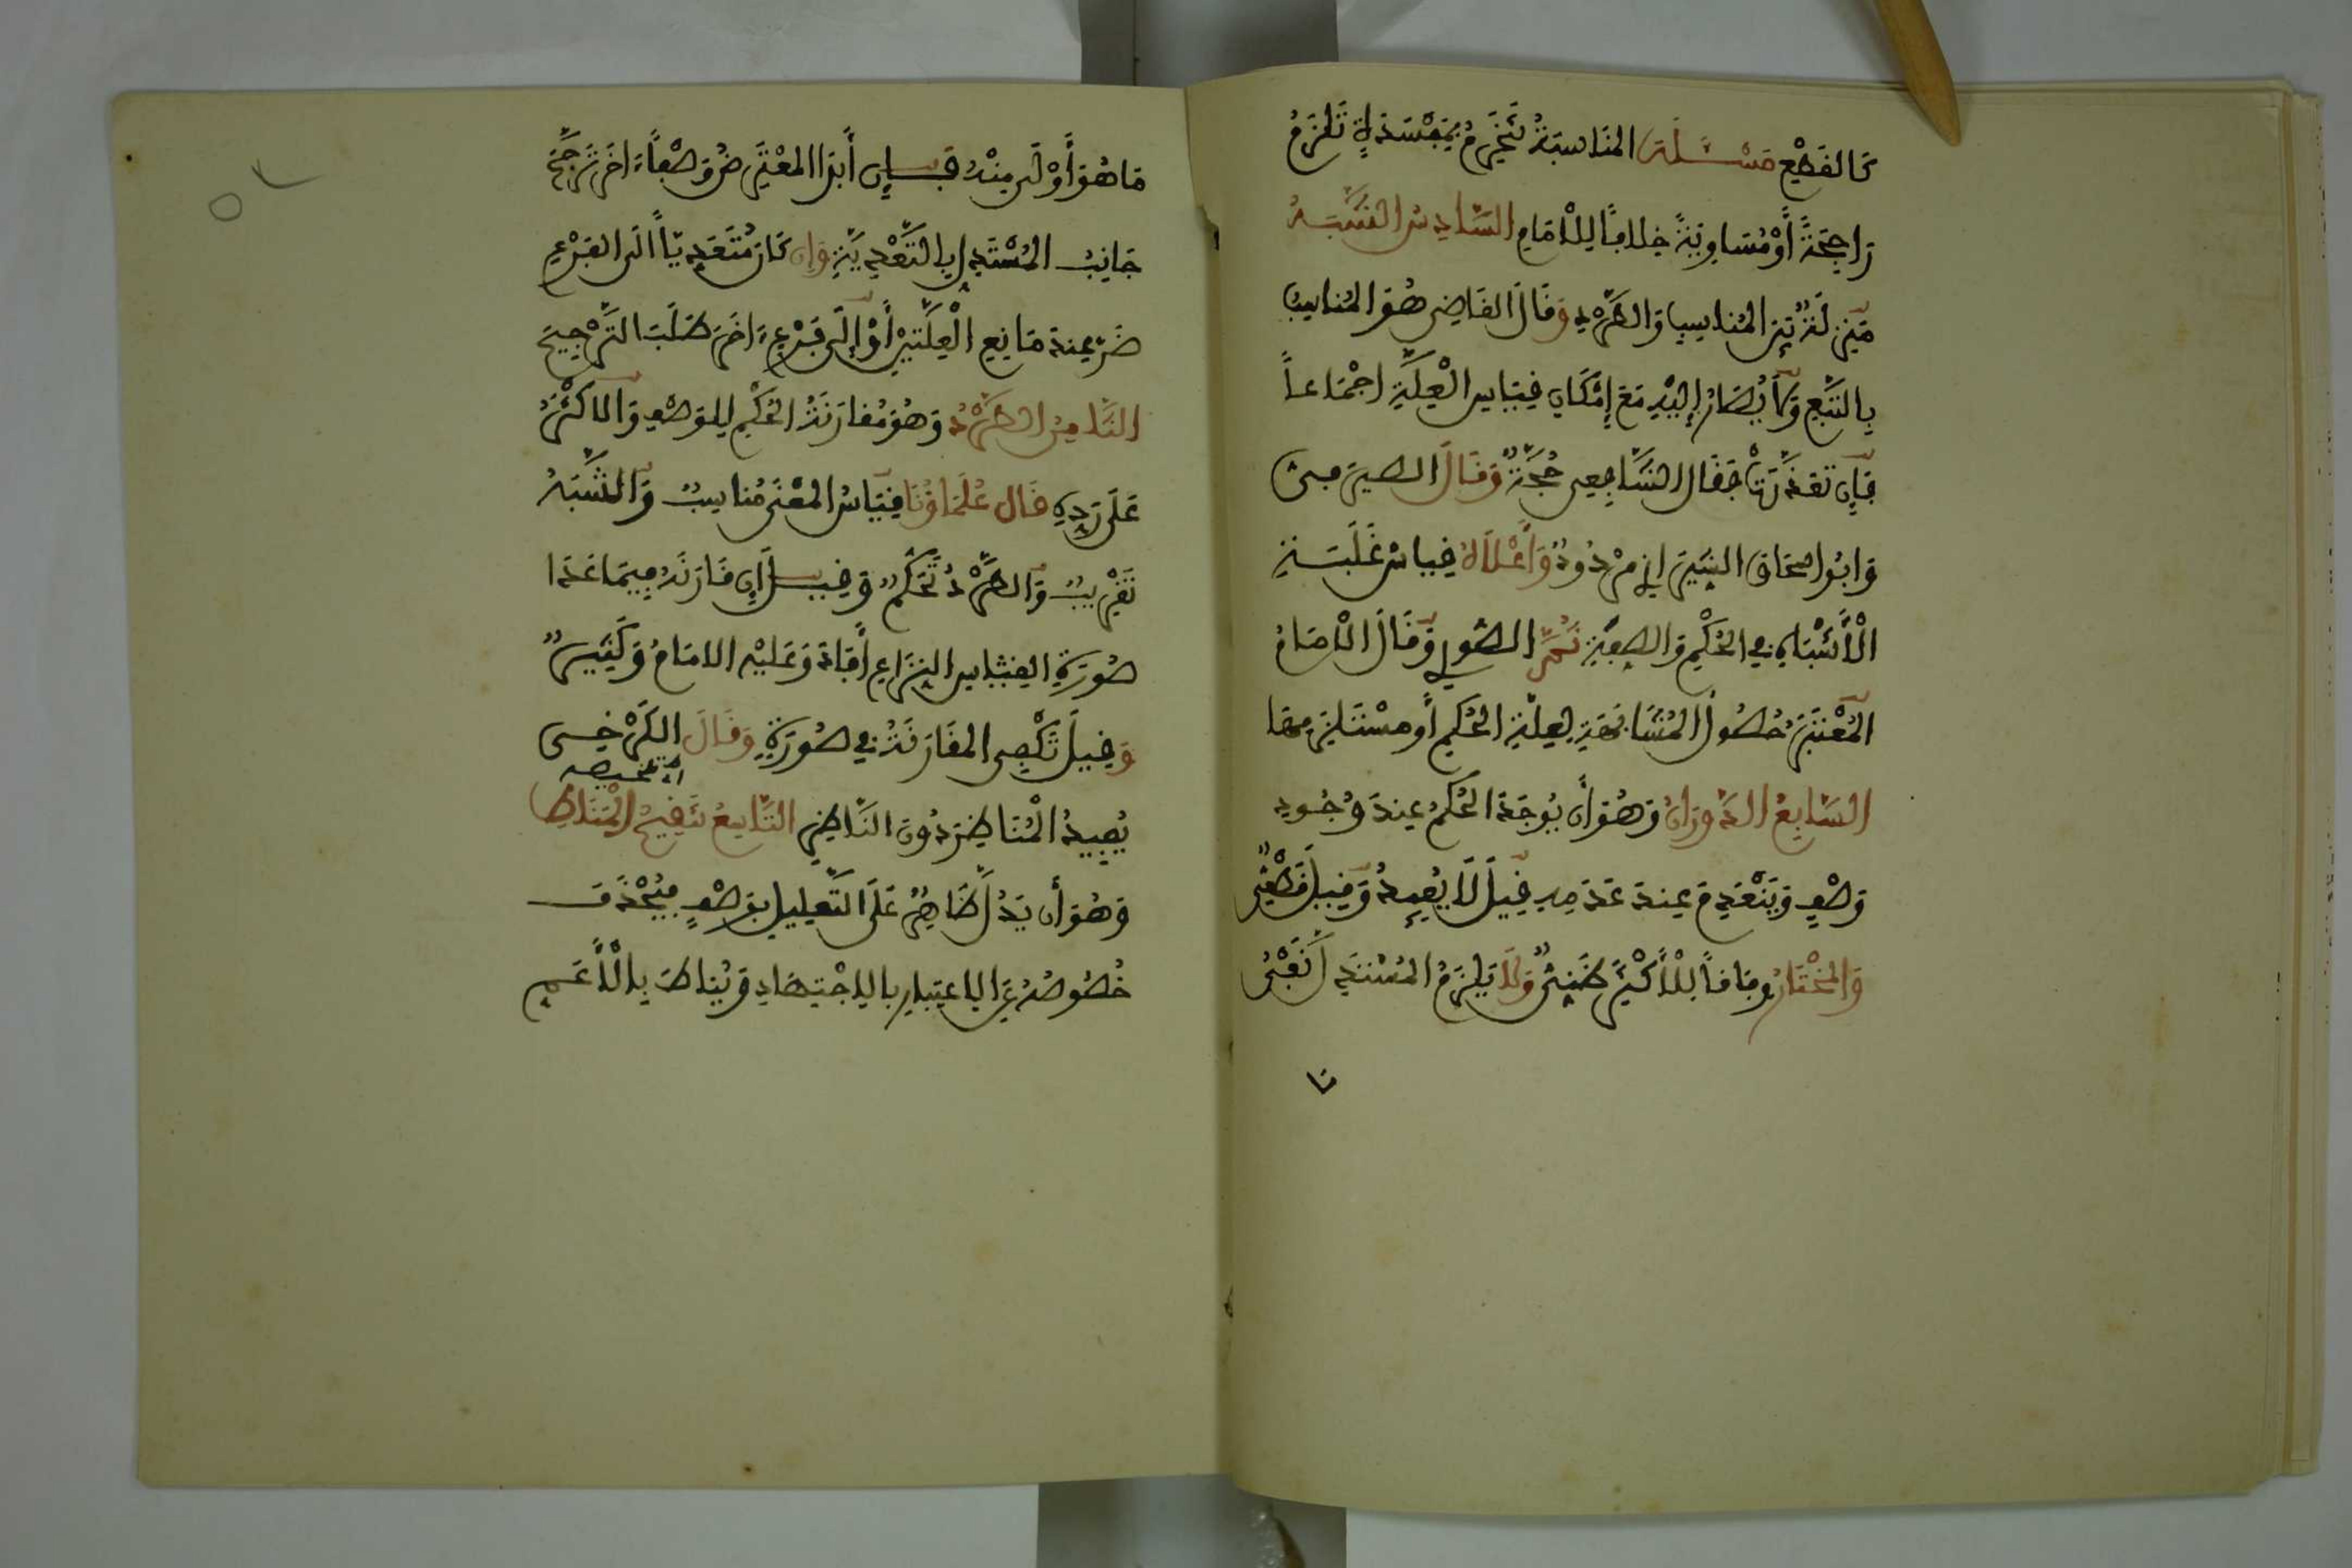 كَالقَطْعِ مَسْئَلَة المُنَاسَبَةُ تَنْخَرِمُ بِمَفْسَدَةٍ تَلْزَمُ
رَاجِحَةً أَوْ مُسَاوِيَةً خِلَافًا لِلْإِمَامِ السَّادِسُ الشَّبَهُ
مَنْزِلَةٌ بَيْنَ المُنَاسِبِ وَالطَّرْدِ وَقَالَ القَاضِي هُوَ المُنَاسِبُ
بِالتَّبَعِ وَلَا يُصَارُ إِلَيْهِ مَعَ إِمْكَانِ قِيَاسِ الْعِلَّةِ اجْمَاعاً
فَإِن تَعَذَّرَتْ فَقَالَ الشَّافِعِي حُجَّةٌ وَقَالَ الصيرَفِيُّ
وَابُو اِسْحَاقَ الشِّيرَازِي مَرْدُودٌ وَأَعْلَاهُ قِيَاسُ غَلَبَةِ
الْأَشْبَاهِ فِي الحُكْمِ وَالصِّفَةِ ثُمَّ الصُّورِي وَقَالَ الْإِمَامُ
المُعْتَبَرُ حُصُولُ المُشَابَهَةِ لِعِلَّةِ الحُكْمِ أَو مُسْتَلْزِمِهَا
السَّابِعُ الدَّوَرَانُ وَهُوَ أَن يُوجَدَ الحُكْمُ عِندَ وُجُودِ
وَصْفٍ وَيَنْعَدِمَ عِندَ عَدَمِهِ قِيلَ لَا يُفِيدُ وَقِيلَ قَطْعِيٌّ
وَالمُخْتَارُ وِفَاقاً لِلْأَكْثَرِ ظَنِّيٌّ وَلَا يَلْزَمُ المُسْتَدِلَّ نَفْيُ
مَا هُوَ أَوْلَى مِنْهُ فَإِن أَبْدَا المُعْتَرِضُ وَصْفاً ءَاخَرَ تَرَجَّحَ
جَانِبُ المُسْتَدِلِّ بِالتَّعْدِيَةِ وَإِن كَانَ مُتَعَدِيّاً الَى الفَرْعِ
ضَرَّ عِندَ مَانِعِ الْعِلَّتَيْنِ أَوْ إِلَى فَرْعٍ ءَاخَرَ طَلَبَ التَّرْجِيحَ
الثَّامِنُ الطَّرْدُ وَهُوَ مُقَارَنَةُ الحُكْمِ لِلْوَصْفِ وَالاكْثَرُ
عَلَى رَدِّهِ قَال عُلَمَاؤُنَا قِيَاسُ المَعْنَى مُنَاسِبٌ وَالشَّبَهُ
تَقْرِيبٌ وَالطَّرْدُ تَحَكُّمٌ وَقِيلَ إِن قَارَنَهُ فِيمَا عَدَا
صُورَةِ النِّزَاعِ أَفَادَ وَعَلَيْهِ الامَامُ وَكَثِيرٌ
وَقِيلَ تَكْفِي المُقَارَنَةُ فِي صُورَةٍ وَقَالَ الكَرْخِي
يُفِيدُ الْمُنَاظِرَ دُونَ النَّاظِرِ التَّاسِعُ تَنقِيحُ الْمَنَاطِ
وَهُوَ أَن يَدُلَّ ظَاهِرٌ عَلَى التَّعْلِيلِ بِوَصْفٍ فَيُحْذَفَ
خُصُوصُهُ عَنِ الِاعْتِبَارِ بِالِاجْتِهَادِ وَيُنَاطَ بِالْأَعَمِّ